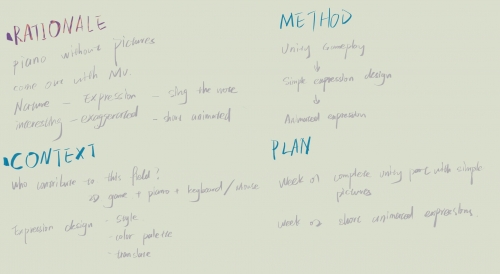 RATIONALE
piano without pictures
come out with MV.
Nature - Expression - sing the note
interesting - exaggerated - short animated
CONTEXT
Who contribute to this field?
game + piano + keyboard / mouse
Expression design - style
- color palette
METHOD
Unity Gameplay
↓
Simple expression design
↓
Animated expression
PLAN
Week 01 complete unity part with simple
pictures
week 02 short animated expressions.